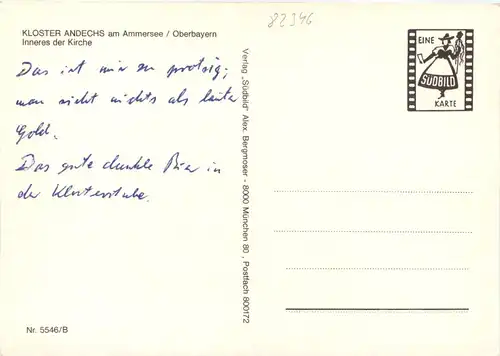 KLOSTER ANDECHS am Ammersee / Oberbayern
Inneres der Kirche
Das ist mir zu protzig;
man sieht nichts als lauter
Gold.
Das gute dunkle Bier in
der Klosterstube.
Nr. 5546/B
Verlag „Südbild" Alex. Bergmoser - 8000 München 80 , Postfach 800172
82346
EINE
SÜDBILD
KARTE